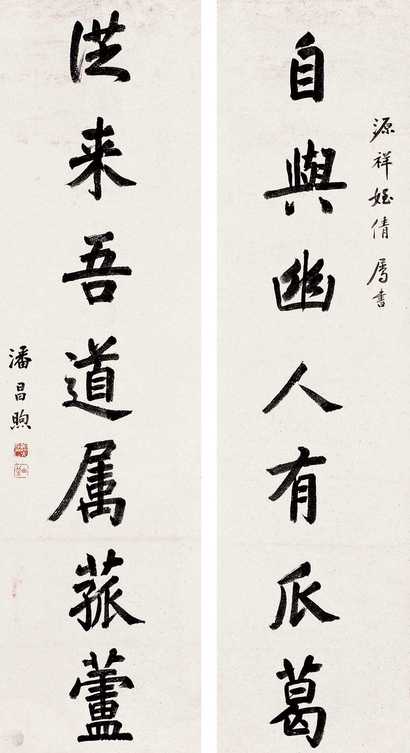 源祥姪倩属書
自與幽人有瓜葛
從来吾道属菰蘆
潘昌煦